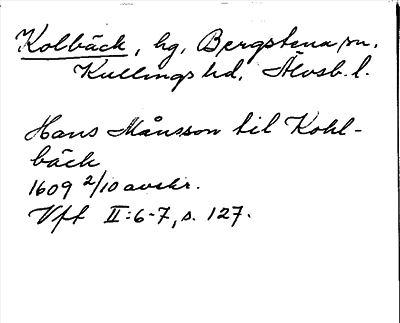 Kolbäck, hg, Bergstena sn.
Kullings hd, Älvsb. l.
Hans Månsson til Kohl-
bäck
1609 2/10 avskr.
Vft II:6-7, s. 127.